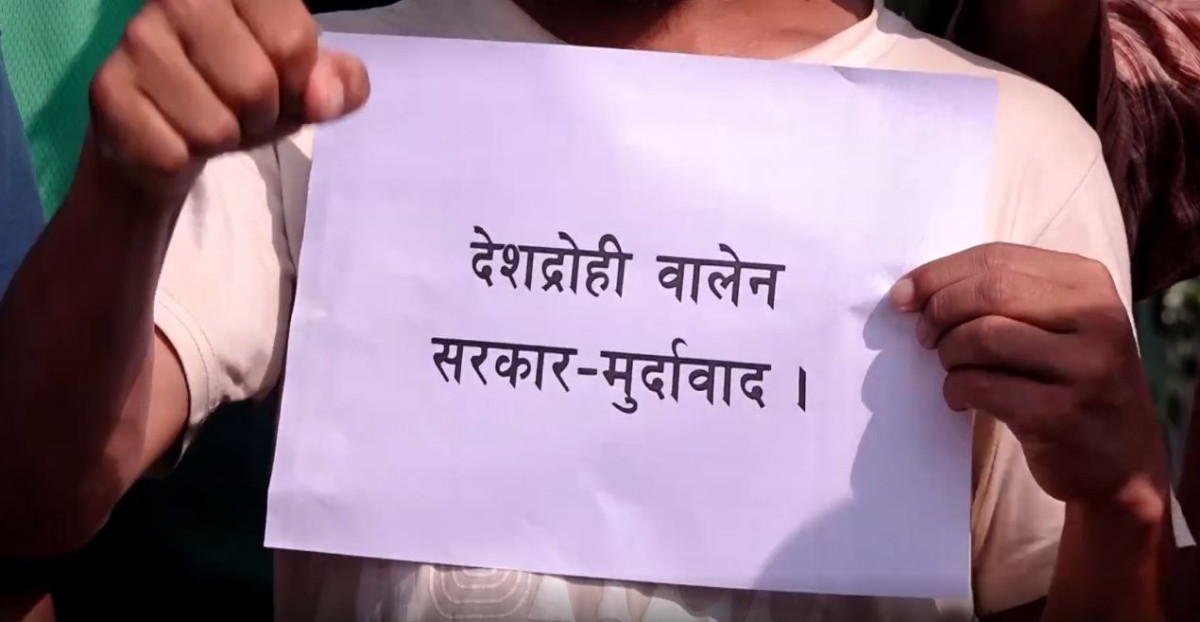 देशद्रोही वालेन
सरकार-मुर्दावाद ।